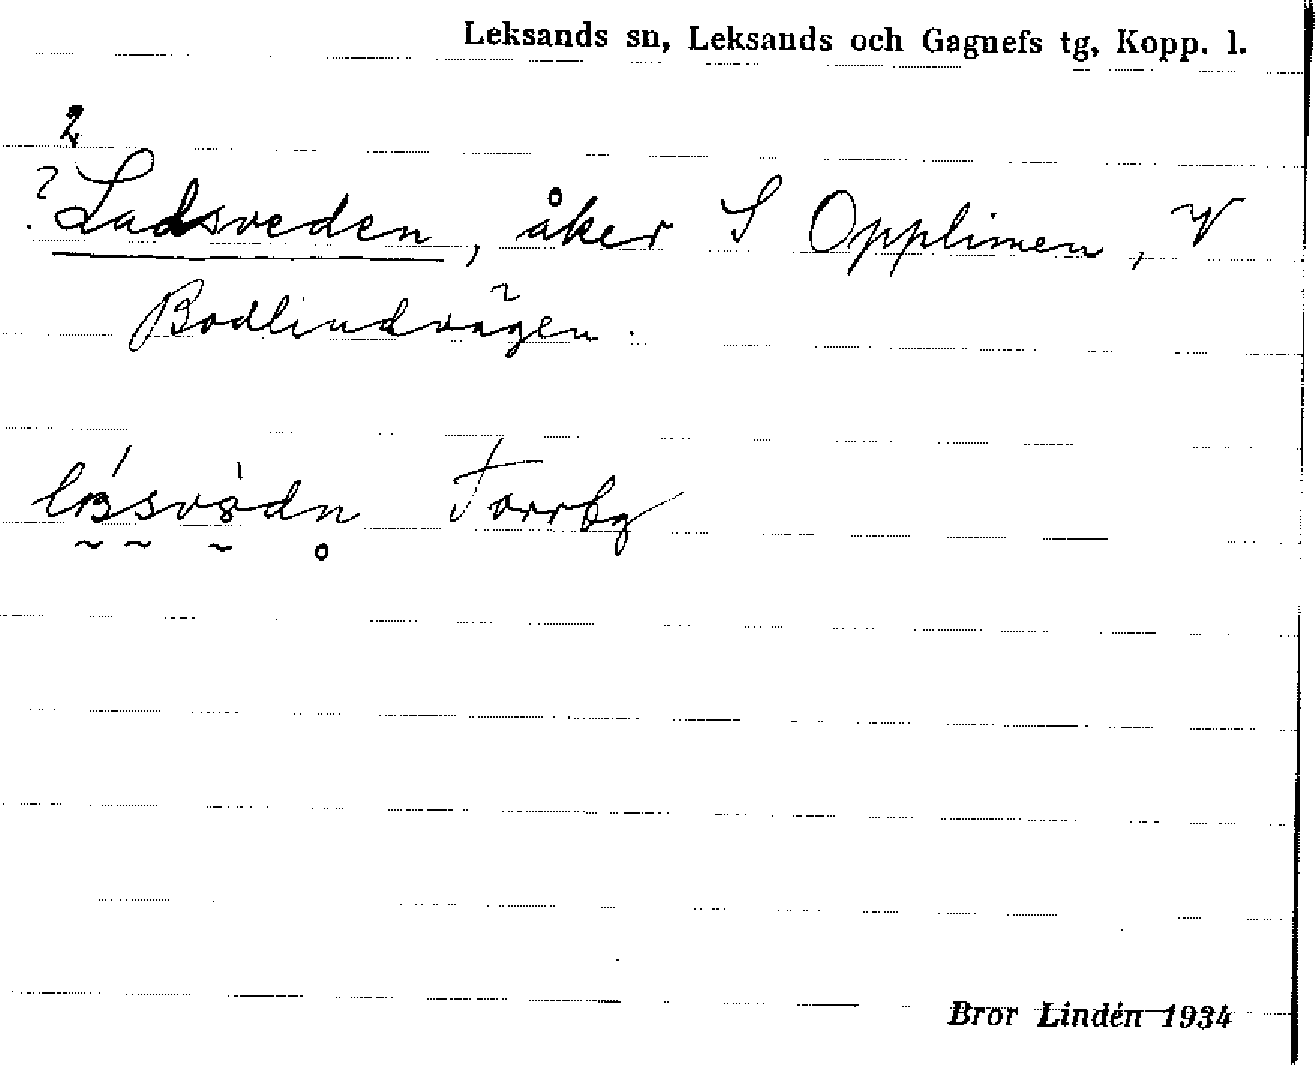 Leksands sn, Leksands och Gagnefs tg, Kopp. l.
2
? Ladsveden, åker S Opplimen, V
Bodlindvägen.
Torrbg
Bror Lindén 1934